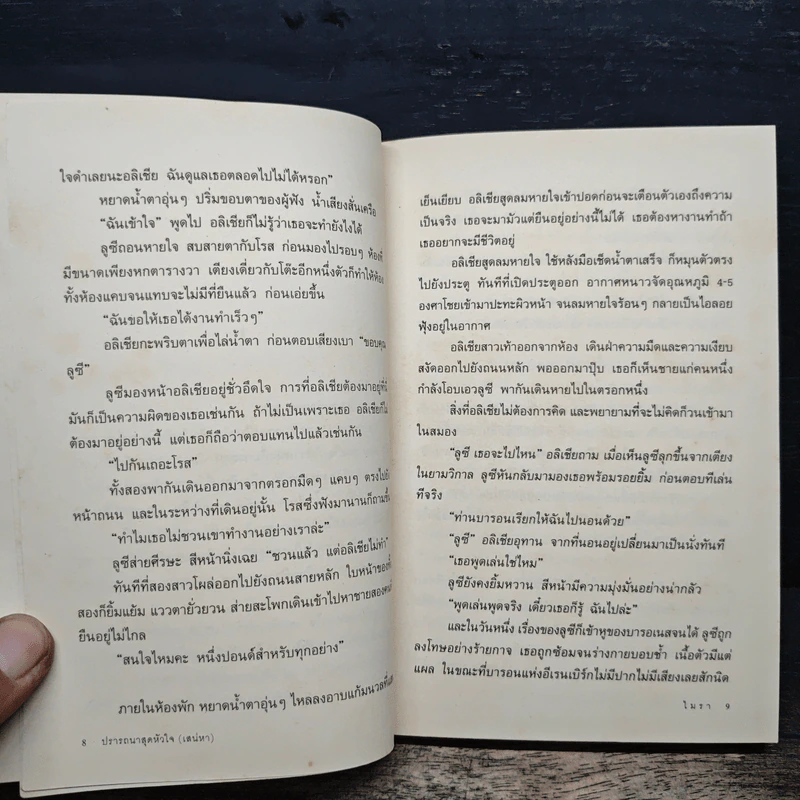 ใจดำเลยนะอลิเซีย ฉันดูแลเธอตลอดไปไม่ได้หรอก”
หยาดน้ำตาอุ่นๆ ปริ่มขอบตาของผู้ฟัง น้ำเสียงสั่นเครือ
“ฉันเข้าใจ” พูดไป อลิเซียก็ไม่รู้ว่าเธอจะทำยังไงได้
ลูซีถอนหายใจ สบสายตากับโรส ก่อนมองไปรอบๆ ห้องที่
มีขนาดเพียงหกตารางวา เตียงเดี่ยวกับโต๊ะอีกหนึ่งตัวก็ทำให้ห้อง
ทั้งห้องแคบจนแทบจะไม่มีที่ยืนแล้ว ก่อนเอ่ยขึ้น
“ฉันขอให้เธอได้งานทำเร็วๆ”
อลิเซียกะพริบตาเพื่อไล่น้ำตา ก่อนตอบเสียงเบา “ขอบคุณ
ลูซี”
ลูซีมองหน้าอลิเซียอยู่ชั่วอึดใจ การที่อลิเซียต้องมาอยู่ที่นี่
มันก็เป็นความผิดของเธอเช่นกัน ถ้าไม่เป็นเพราะเธอ อลิเซียก็ไม่
ต้องมาอยู่อย่างนี้ แต่เธอก็ถือว่าตอบแทนไปแล้วเช่นกัน
“ไปกันเถอะโรส”
ทั้งสองพากันเดินออกมาจากตรอกมืดๆ แคบๆ ตรงไปยัง
หน้าถนน และในระหว่างที่เดินอยู่นั้น โรสซึ่งฟังมานานก็ถามขึ้น
“ทำไมเธอไม่ชวนเขาทำงานอย่างเราล่ะ”
ลูซีส่ายศีรษะ สีหน้านิ่งเฉย “ชวนแล้ว แต่อลิเซียไม่ทำ”
ทันทีที่สองสาวโผล่ออกไปยังถนนสายหลัก ใบหน้าของทั้ง
สองก็ยิ้มแย้ม แววตายั่วยวน ส่ายสะโพกเดินเข้าไปหาชายสองคนที่
ยืนอยู่ไม่ไกล
“สนใจไหมคะ หนึ่งปอนด์สำหรับทุกอย่าง”
ภายในห้องพัก หยาดน้ำตาอุ่นๆ ไหลลงอาบแก้มนวลที่
8 ปรารถนาสุดหัวใจ (เสน่หา)
เย็นเยียบ อลิเซียสูดลมหายใจเข้าปอดก่อนจะเตือนตัวเองถึงความ
เป็นจริง เธอจะมามัวแต่ยืนอยู่อย่างนี้ไม่ได้ เธอต้องหางานทำถ้า
เธออยากจะมีชีวิตอยู่
อลิเซียสูดลมหายใจ ใช้หลังมือเช็ดน้ำตาเสร็จ ก็หมุนตัวตรง
ไปยังประตู ทันทีที่เปิดประตูออก อากาศหนาวจัดอุณหภูมิ 4-5
องศาโชยเข้ามาปะทะผิวหน้า จนลมหายใจร้อนๆ กลายเป็นไอลอย
ฟุ้งอยู่ในอากาศ
อลิเซียสาวเท้าออกจากห้อง เดินฝ่าความมืดและความเงียบ
สงัดออกไปยังถนนหลัก พอออกมาปุ๊บ เธอก็เห็นชายแก่คนหนึ่ง
กำลังโอบเอวลูซี พากันเดินหายไปในตรอกหนึ่ง
สิ่งที่อลิเซียไม่ต้องการคิด และพยายามที่จะไม่คิดก็วนเข้ามา
ในสมอง
“ลูซี เธอจะไปไหน” อลิเซียถาม เมื่อเห็นลูซีลุกขึ้นจากเตียง
ในยามวิกาล ลูซีหันกลับมามองเธอพร้อมรอยยิ้ม ก่อนตอบทีเล่น
ทีจริง
“ท่านบารอนเรียกให้ฉันไปนอนด้วย”
“ลูซี” อลิเซียอุทาน จากที่นอนอยู่เปลี่ยนมาเป็นนั่งทันที
“เธอพูดเล่นใช่ไหม”
ลูซียังคงยิ้มหวาน สีหน้ามีความมุ่งมั่นอย่างน่ากลัว
“พูดเล่นพูดจริง เดี๋ยวเธอก็รู้ ฉันไปล่ะ”
และในวันหนึ่ง เรื่องของลูซีก็เข้าหูของบารอเนสจนได้ ลูซีถูก
ลงโทษอย่างร้ายกาจ เธอถูกซ้อมจนร่างกายบอบช้ำ เนื้อตัวมีแต่
แผล ในขณะที่บารอนแห่งอีเรนเบิร์กไม่มีปากไม่มีเสียงเลยสักนิด
ไมรา 9